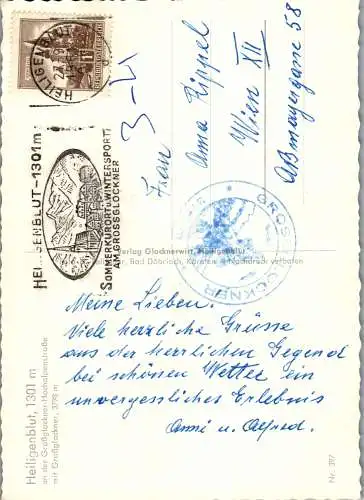 HEILIGENBLUT
HEILIGENBLUT-1301m
SOMMERKURORT u. WINTERSPORT
AM GROSSGLOCKNER
3-4
Frau
Anna Rippel
Wien XII
Aßmayergasse 58
GROSSGLOCKNER
Verlag Glocknerwirt, Heiligenblut
Bad Döbriach, Kärnten
Nachdruck verboten
Meine Lieben.
Viele herzliche Grüsse
aus der herrlichen Gegend
bei schönen Wetter ein
unvergessliches Erlebnis
Anni u. Alfred.
Heiligenblut, 1301 m
an der Großglockner-Hochalpenstraße
mit Großglockner, 3798 m
Nr. 397